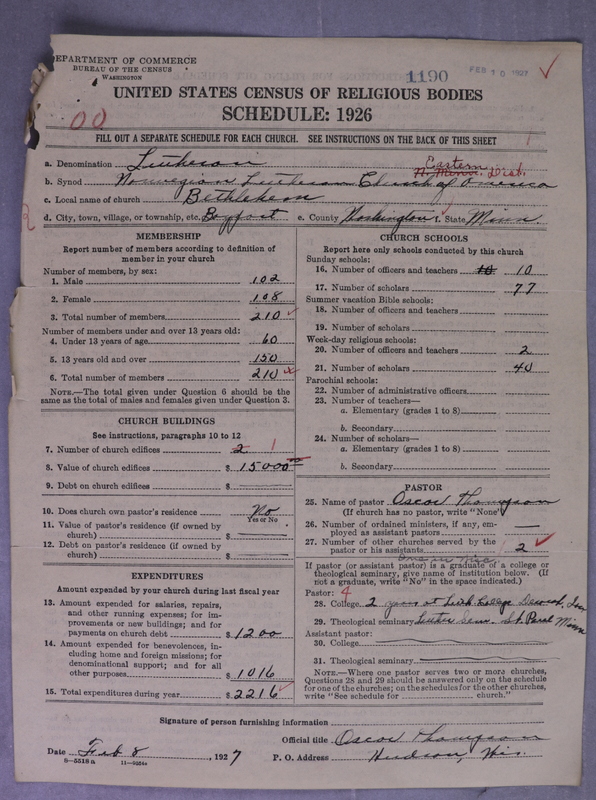 DEPARTMENT OF COMMERCE
BUREAU OF THE CENSUS
WASHINGTON
1190
FEB 10 1927
UNITED STATES CENSUS OF RELIGIOUS BODIES
SCHEDULE: 1926
00
FILL OUT A SEPARATE SCHEDULE FOR EACH CHURCH. SEE INSTRUCTIONS ON THE BACK OF THIS SHEET
a. Denomination Lutheran
Eastern
N. Minn. Dist.
b. Synod Norwegian Lutheran Church of America
c. Local name of church Bethlehem
d. City, town, village, or township, etc. Bayport e. County Washington f. State Minn.
MEMBERSHIP
Report number of members according to definition of
member in your church
Number of members, by sex:
1. Male 102
2. Female 108
3. Total number of members 210
Number of members under and over 13 years old:
4. Under 13 years of age 60
5. 13 years old and over 150
6. Total number of members 210
NOTE.—The total given under Question 6 should be the
same as the total of males and females given under Question 3.
CHURCH BUILDINGS
See instructions, paragraphs 10 to 12
7. Number of church edifices 2 1
8. Value of church edifices $ 15000 00
9. Debt on church edifices $
10. Does church own pastor's residence No
Yes or No
11. Value of pastor's residence (if owned by
church) $
12. Debt on pastor's residence (if owned by
church) $
EXPENDITURES
Amount expended by your church during last fiscal year
13. Amount expended for salaries, repairs,
and other running expenses; for im-
provements or new buildings; and for
payments on church debt $ 1200
14. Amount expended for benevolences, in-
cluding home and foreign missions; for
denominational support; and for all
other purposes $ 1016
15. Total expenditures during year $ 2216
CHURCH SCHOOLS
Report here only schools conducted by this church
Sunday schools:
16. Number of officers and teachers 10 10
17. Number of scholars 77
Summer vacation Bible schools:
18. Number of officers and teachers
19. Number of scholars
Week-day religious schools:
20. Number of officers and teachers 2
21. Number of scholars 40
Parochial schools:
22. Number of administrative officers
23. Number of teachers—
a. Elementary (grades 1 to 8)
b. Secondary
24. Number of scholars—
a. Elementary (grades 1 to 8)
b. Secondary
PASTOR
25. Name of pastor Oscar Thompson
(If church has no pastor, write "None")
26. Number of ordained ministers, if any, em-
ployed as assistant pastors
27. Number of other churches served by the
pastor or his assistants 2
One in Wis.
If pastor (or assistant pastor) is a graduate of a college or
theological seminary, give name of institution below. (If
not a graduate, write "No" in the space indicated.)
Pastor: 4
28. College 2 years at Luth College Decorah, Ia
29. Theological seminary Luther Sem. St. Paul Minn
Assistant pastor:
30. College
31. Theological seminary
NOTE.—Where one pastor serves two or more churches,
Questions 28 and 29 should be answered only on the schedule
for one of the churches; on the schedules for the other churches,
write "See schedule for church."
Signature of person furnishing information
Official title Oscar Thompson
Date Feb 8, 1927 P. O. Address Hudson, Wis.
8—5518a 11—9254a